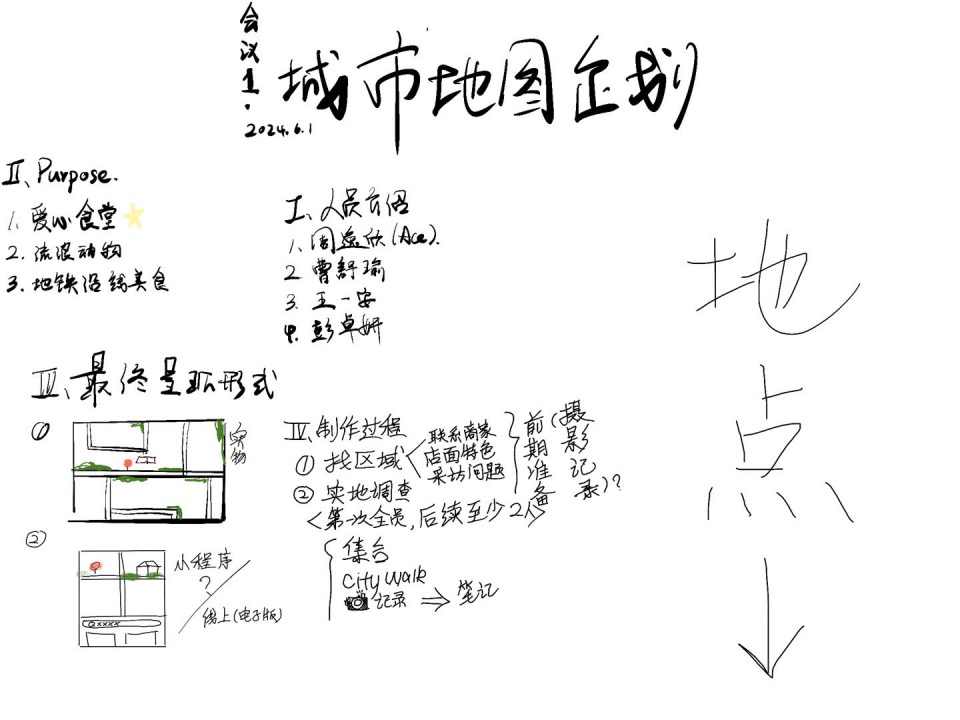 会议1.
2024.6.1
城市地图企划
II、Purpose.
1. 爱心食堂
2. 流浪动物
3. 地铁沿线美食
I、人员介绍
1. 周逸欣(Ace).
2. 曹舒瑜
3. 王一安
4. 彭卓妍
III、最终呈现形式
①
实物
②
小程序
?
线上(电子版)
Qxxxx
IV、制作过程
① 找区域
联系商家
店面特色
采访问题
前期准备
(摄影记录)?
② 实地调查
<第一次全员,后续至少2人>
集合
City Walk
记录 ⇒ 笔记
地点
↓